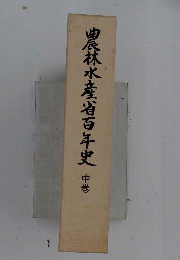 農林水産省百年史 中巻